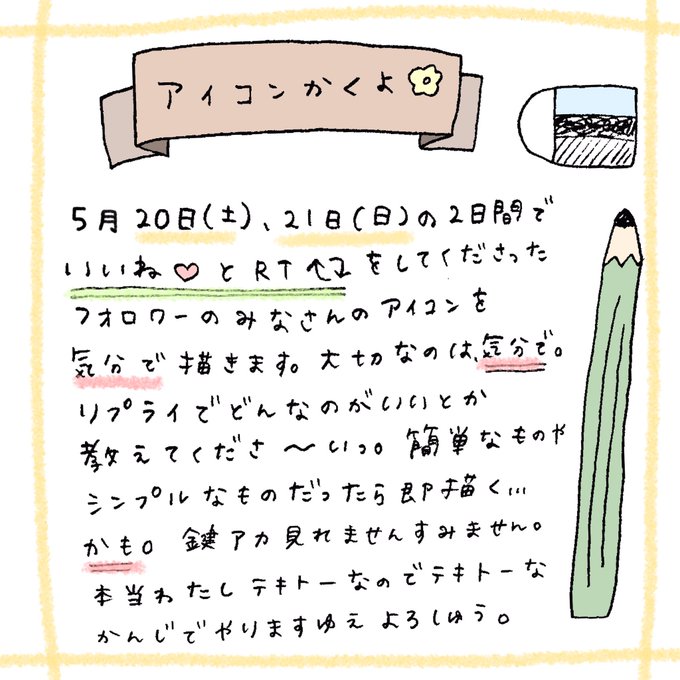 アイコンかくよ
5月20日(土)、21日(日)の2日間で
いいね♡とRTをしてくださった
フォロワーのみなさんのアイコンを
気分で描きます。大切なのは、気分で。
リプライでどんなのがいいとか
教えてくださ〜いっ。簡単なものや
シンプルなものだったら即描く…
かも。鍵アカ見れませんすみません。
本当わたしテキトーなのでテキトーな
かんじでやりますゆえよろしゅう。